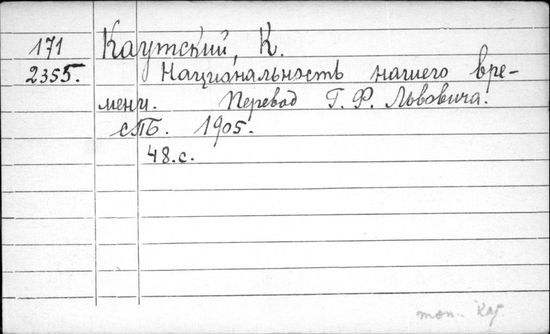 171
2355.
Каутский, К.
Национальность нашего вре-
мени. Перевод Г. Ф. Львовича.
сПБ. 1905.
48.с.